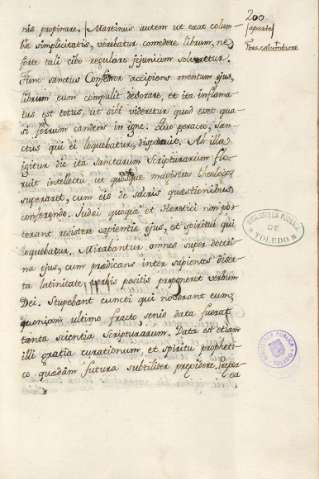 nia propinare. Martinus autem ut erat colum
bæ simplicitatis, verebatur comedere librum, ne
forte tali cibo regulare jejunium solveretur.
Hinc sanctus Confesor accipiens mentum ejus,
librum eum compulit devorare, et ita inflama
tus est totus, ut sibi videretur quod esset qua
si ferrum candens in igne. Quo peracto, San
ctus qui ei loquebatur, disparuit. Ab illa
igitur die ita Sanctarum Scripturarum flo
ruit intellectu, ut magistros theologos
superaret, cum eis de sacris quæstionibus
conferendo. Judei quoque et Heretici non po
terant resistere sapientiæ ejus, et spiritui qui
loquebatur. Mirabantur omnes super doctri
na ejus, cum prædicans inter sapientes diser
ta latinitate positis proponeret verbum
Dei. Stupebant cuncti qui noverant eum,
quoniam ultimo fracto senio data fuerat
tanta scientia Scripturarum. Data est etiam
illi gratia curationum, et spiritu propheti
co quædam futura subtiliter prævidere,
200
BIBLIOTECA PUBLICA
DE
TOLEDO